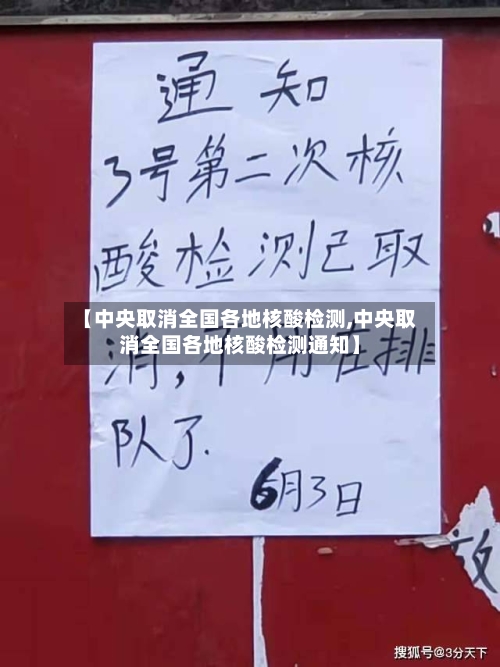 通知
3号第二次核
酸检测已取
【中央取消全国各地核酸检测,中央取
消全国各地核酸检测通知】
消,不用在排
队了.
6月3日
搜狐号@3分天下